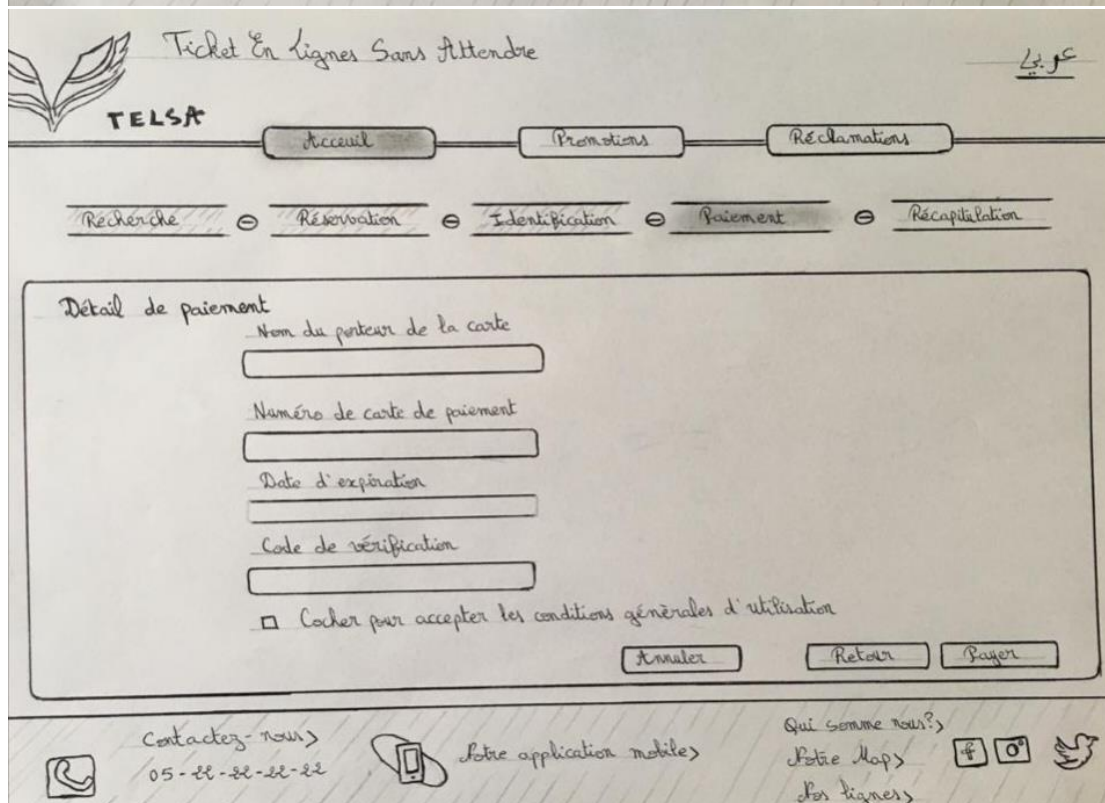 Ticket En Lignes Sans Attendre
عربي
TELSA
Acceuil
Promotions
Réclamations
Recherche
Réservation
Identification
Paiement
Récapitulation
Détail de paiement
Nom du porteur de la carte
Numéro de carte de paiement
Date d'expiration
Code de vérification
Cocher pour accepter les conditions générales d'utilisation
Annuler
Retour
Payer
Contactez-nous>
05-22-22-22-22
Notre application mobile>
Qui somme nous?>
Notre Map>
Nos lignes>